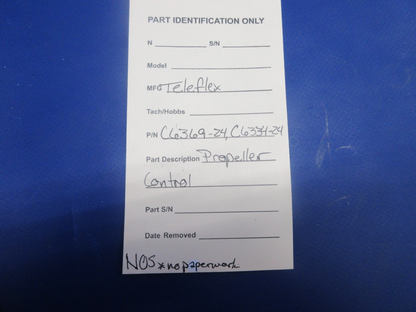 PART IDENTIFICATION ONLY
N ________ S/N ________
Model ________
MFG Teleflex
Tach/Hobbs ________
P/N C6369-24, C6334-24
Part Description Propeller
Control
Part S/N ________
Date Removed ________
NOS * no paperwork